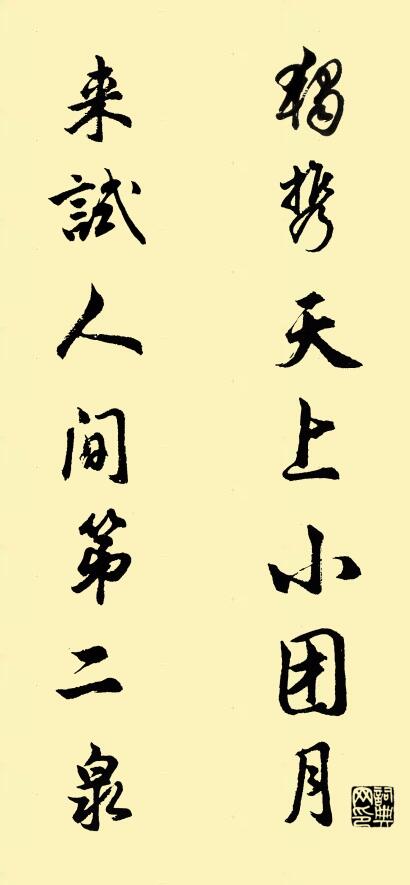 独携天上小团月
来试人间第二泉
詞典网印